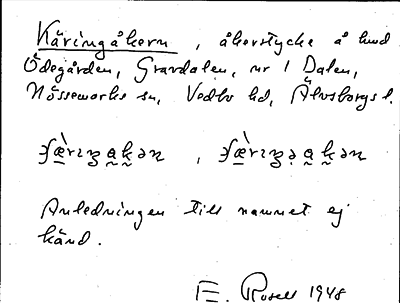 Käringåkern, åkerstycke å hmd
Ödegården, Gravdalen, nr 1 Dalen,
Nössemarks sn, Vedbo hd, Älvsborgs l.
Anledningen till namnet ej
känd.
E. Rosell 1948